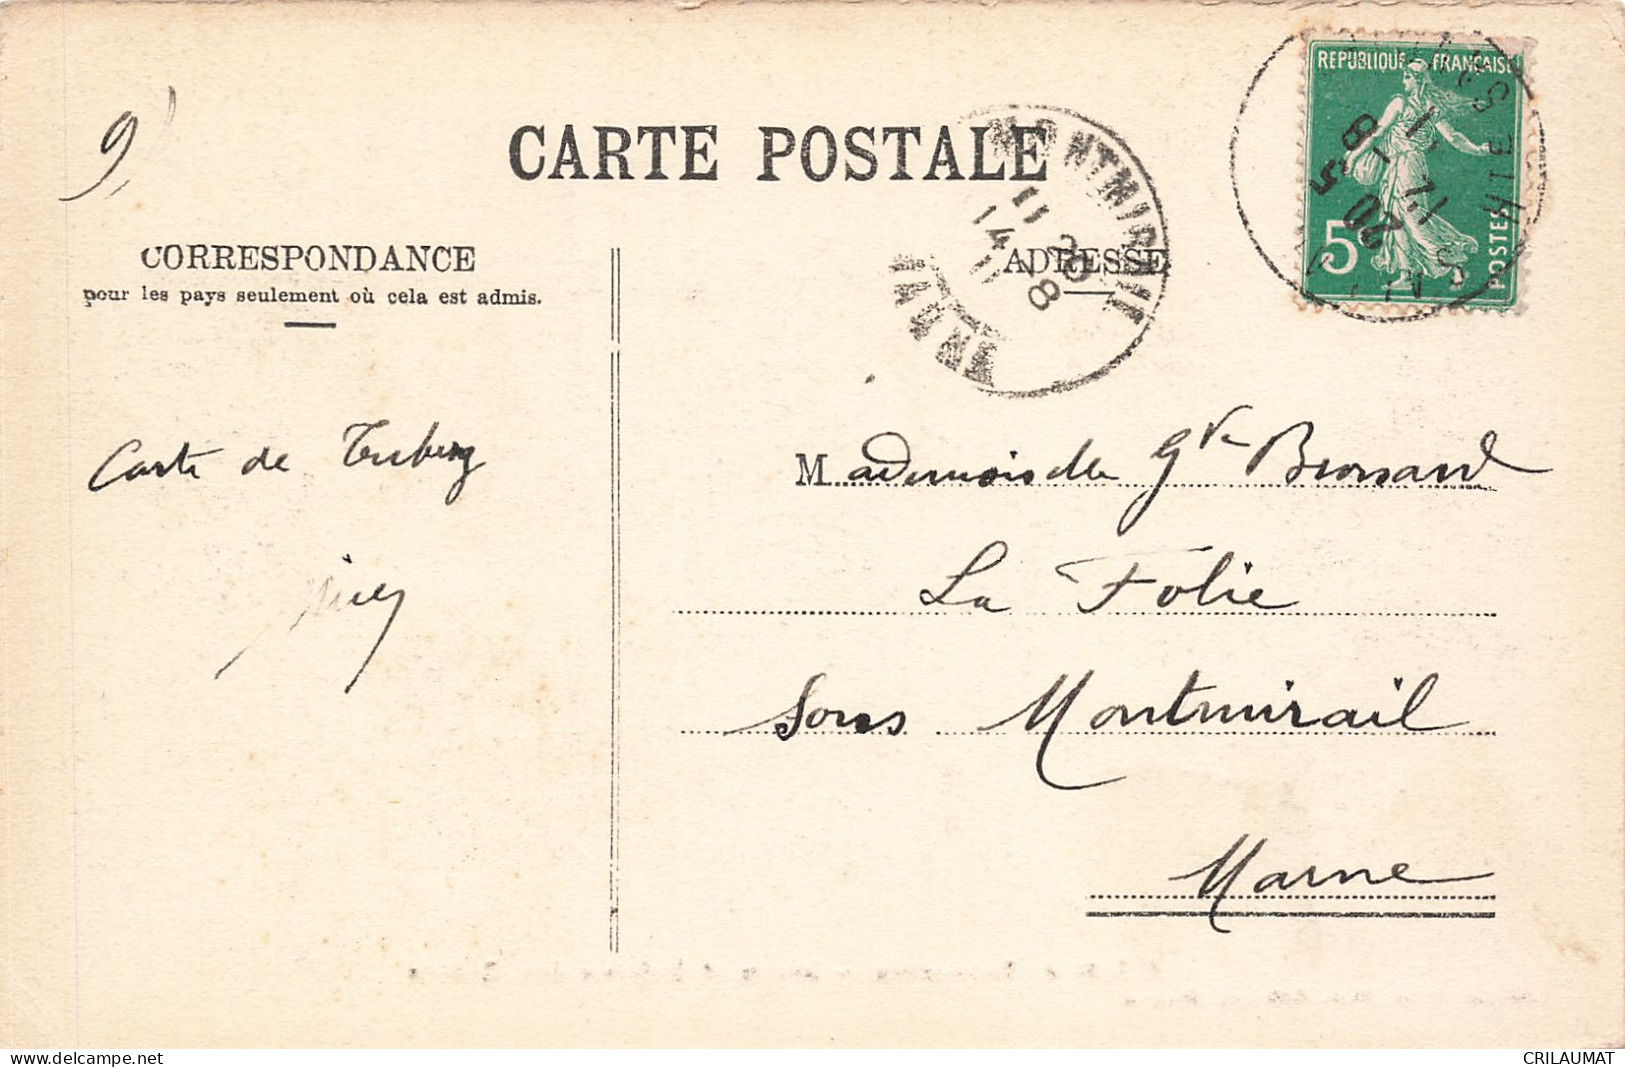 9
CARTE POSTALE
REPUBLIQUE FRANÇAISE
5c
POSTES
20 - 8
MONTMIRAIL
MARNE
11 20 8
14 11
CORRESPONDANCE
pour les pays seulement où cela est admis.
ADRESSE
Carte de
Mademoiselle Gve Bronsard
La Folie
Sous Montmirail
Marne
delcampe.net
CRILAUMAT